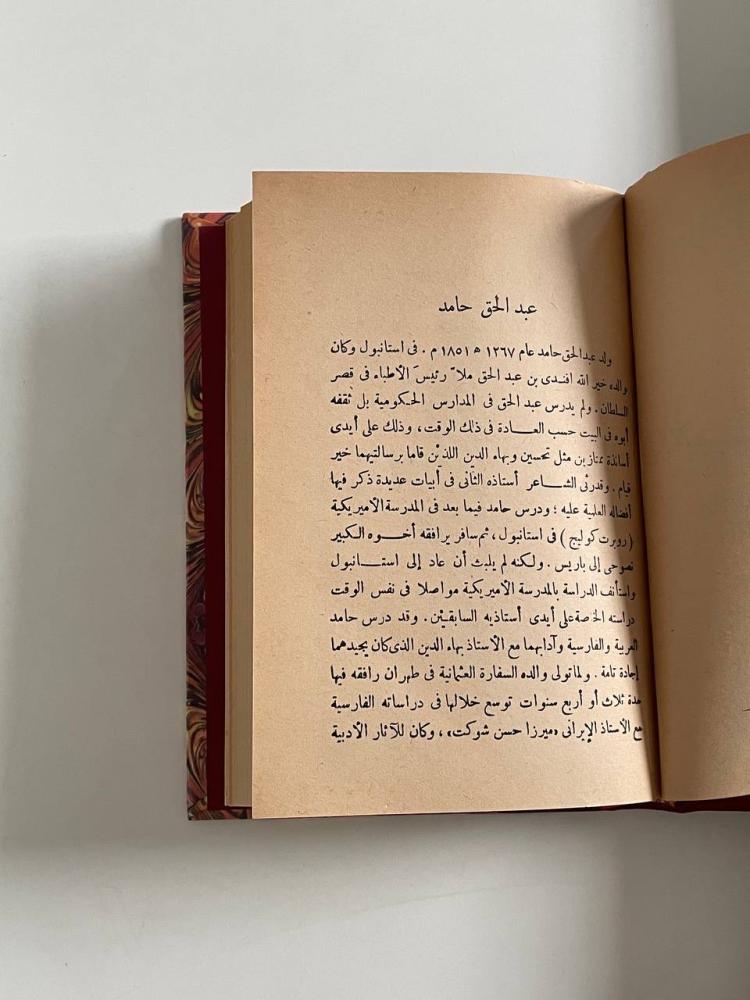 عبد الحق حامد
ولد عبد الحق حامد عام ١٢٦٧ ه ١٨٥١ م . فى استانبول وكان
والده خير الله افندى بن عبد الحق ملاّ رئيسَ الأطباء فى قصر
السلطان . ولم يدرس عبد الحق فى المدارس الحكومية بل ثقفه
أبوه فى البيت حسب العـــادة فى ذلك الوقت ، وذلك على أيدى
أساتذة ممتازين مثل تحسين وبهاء الدين اللذين قاما برسالتيهما خير
قيام . وقد رثى الشـــاعر أستاذه الثانى فى أبيات عديدة ذكر فيها
أفضاله العلمية عليه ؛ ودرس حامد فيما بعد فى المدرسة الأميريكية
( روبرت كوليج ) فى استانبول ، ثم سافر يرافقه أخـــوه الكبير
نصوحى إلى باريس . ولكنه لم يلبث أن عاد إلى استـــانبول
واستأنف الدراسة بالمدرسة الأميريكية مواصلا فى نفس الوقت
دراسته الخاصة على أيدى أستاذيه السابقين . وقد درس حامد
العربية والفارسية وآدابهما مع الأستاذ بهاء الدين الذى كان يجيدهما
إجادة تامة . ولما تولى والده السفارة العثمانية فى طهران رافقه فيها
مدة ثلاث أو أربع سنوات توسع خلالها فى دراساته الفارسية
مع الأستاذ الإيرانى «ميرزا حسن شوكت» ، وكان للآثار الأدبية